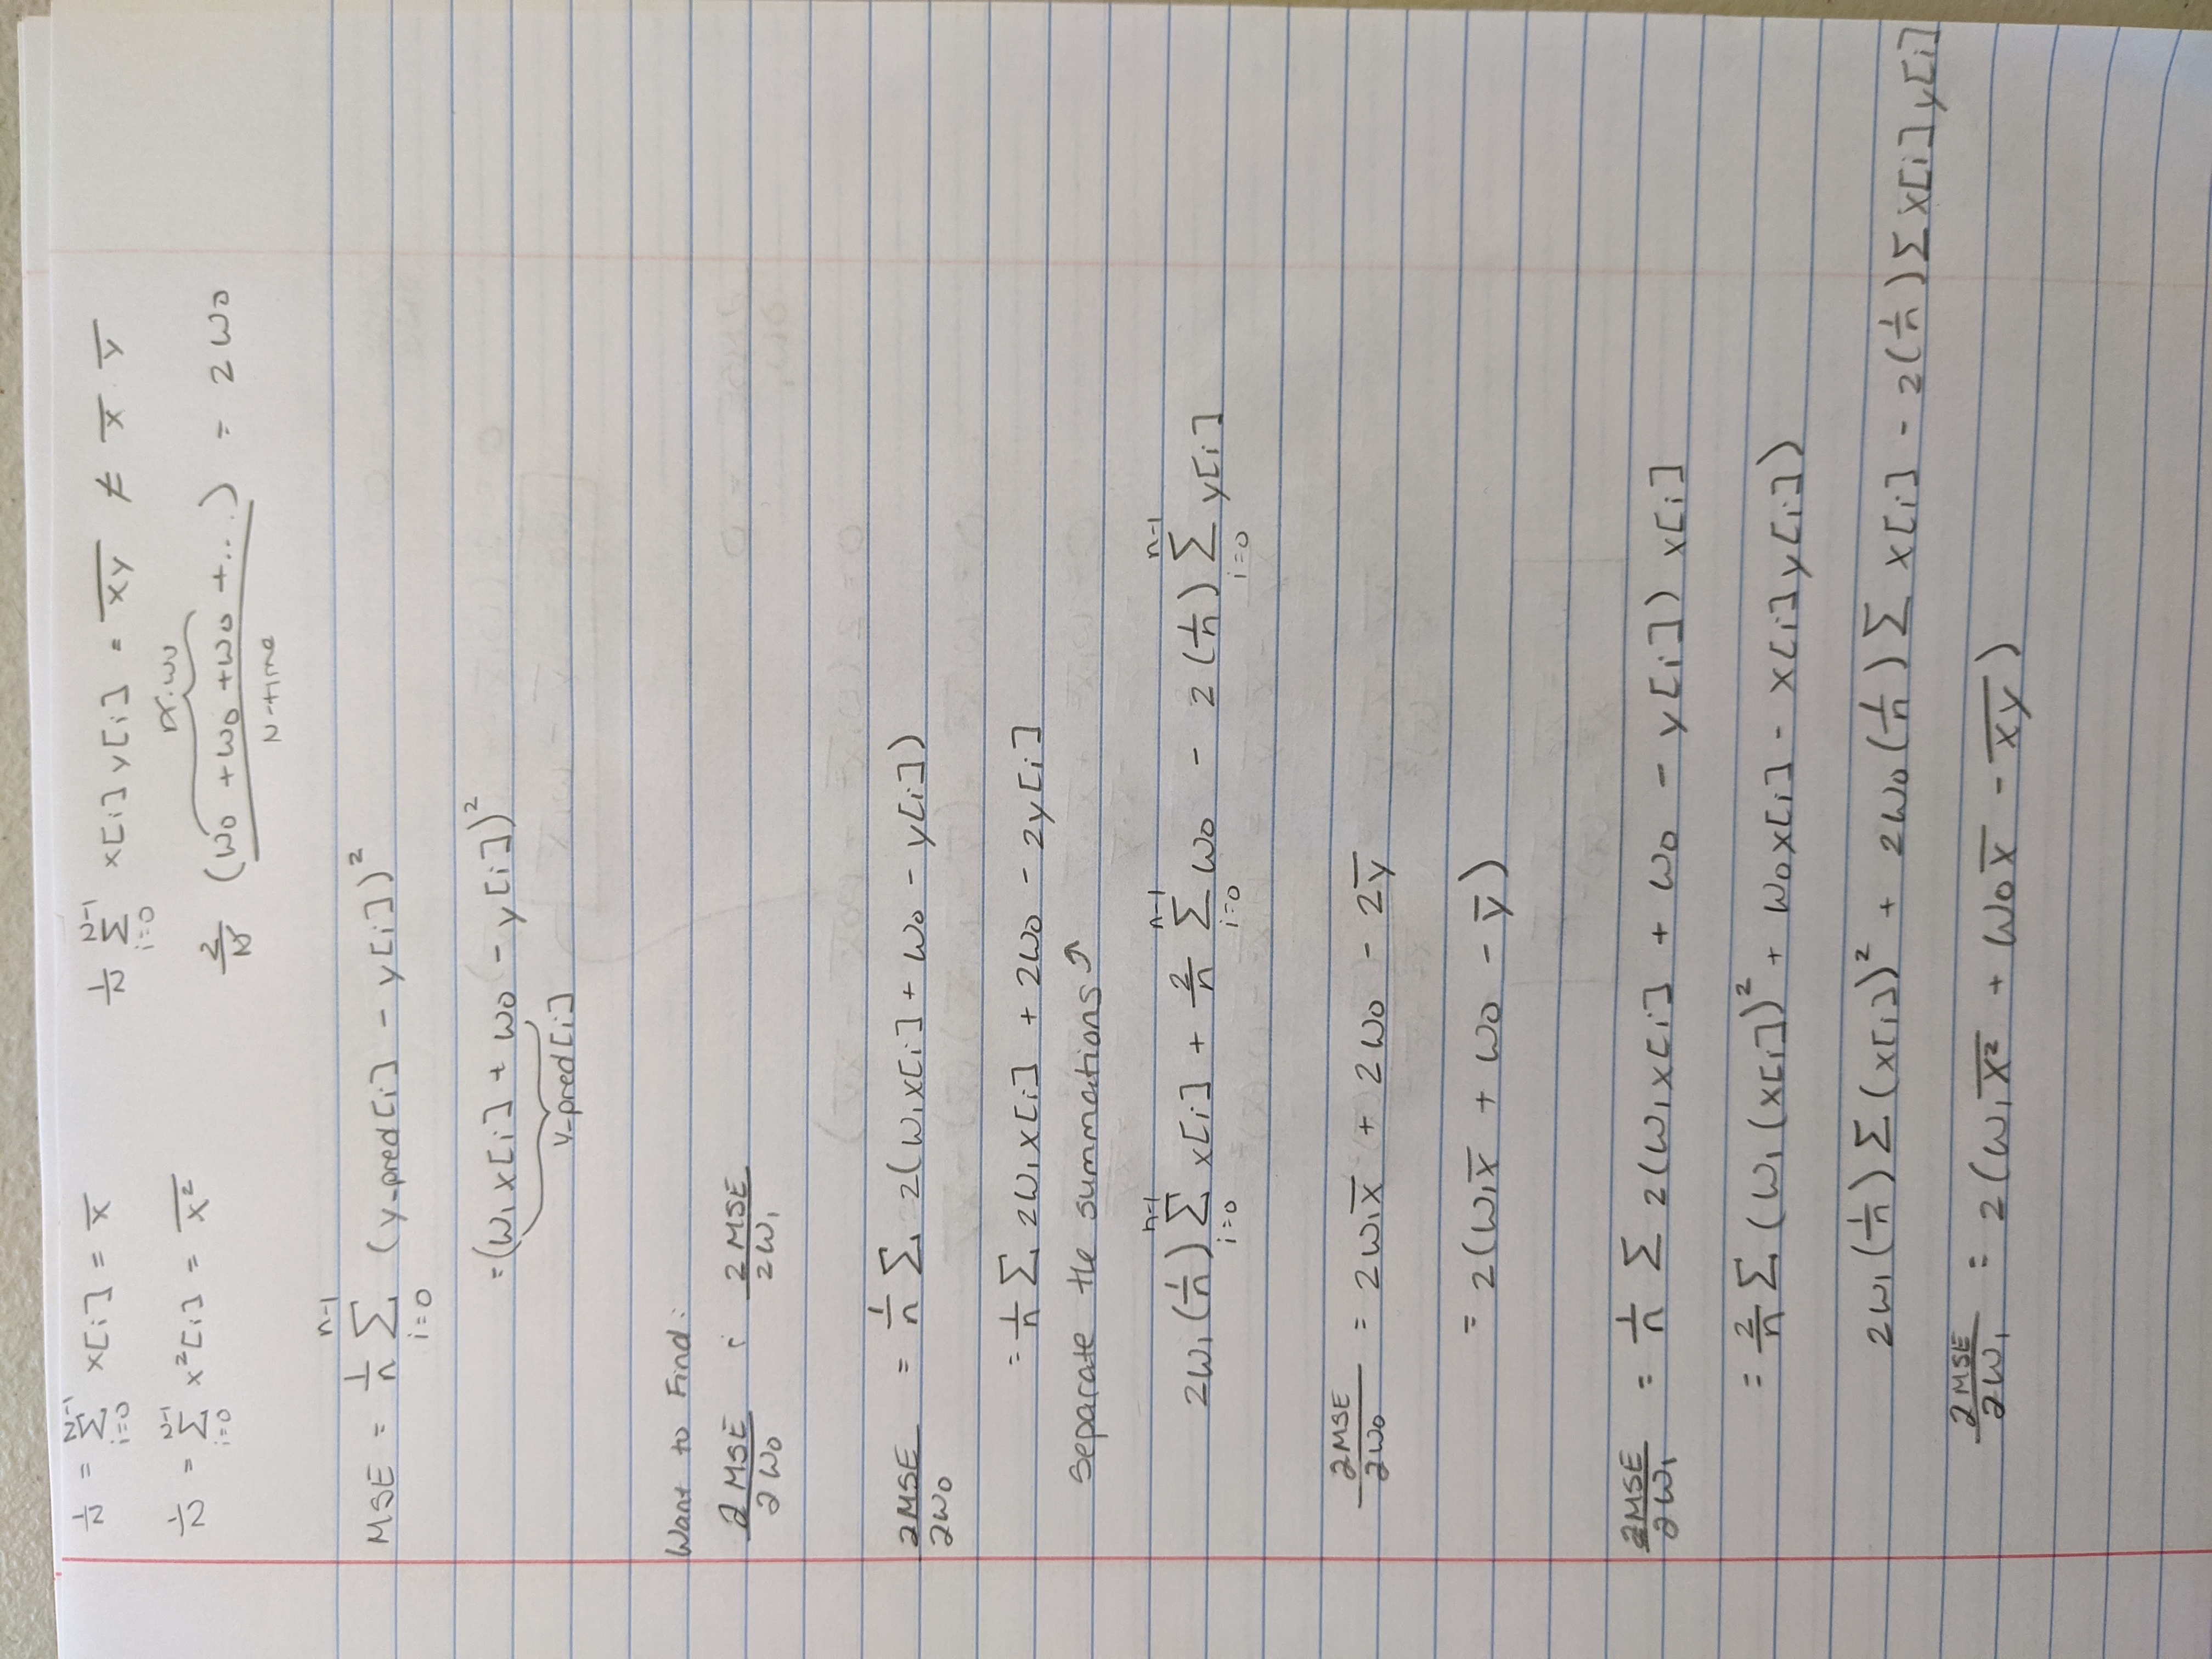 1/N = Σ_{i=0}^{N-1} x[i] = x̅
1/N Σ_{i=0}^{N-1} x[i] y[i] = x̅y̅ ≠ x̅ · y̅
1/N = Σ_{i=0}^{N-1} x²[i] = x̅²̅
N·w0
2/N (w0 + w0 + w0 + ...) = 2w0
N-time
MSE = 1/n Σ_{i=0}^{n-1} (y-pred[i] - y[i])²
= (w₁x[i] + w0 - y[i])²
y-pred[i]
Want to Find:
∂MSE/∂w0 ; ∂MSE/∂w₁
∂MSE/∂w0 = 1/n Σ 2(w₁x[i] + w0 - y[i])
= 1/n Σ 2w₁x[i] + 2w0 - 2y[i]
Separate the summations ↑
2w₁(1/n) Σ_{i=0}^{n-1} x[i] + 2/n Σ_{i=0}^{n-1} w0 - 2(1/n) Σ_{i=0}^{n-1} y[i]
∂MSE/∂w0 = 2w₁x̅ + 2w0 - 2y̅
= 2(w₁x̅ + w0 - y̅)
∂MSE/∂w₁ = 1/n Σ 2(w₁x[i] + w0 - y[i]) x[i]
= 2/n Σ (w₁(x[i])² + w0x[i] - x[i]y[i])
2w₁(1/n) Σ (x[i])² + 2w0(1/n) Σ x[i] - 2(1/n) Σ x[i]y[i]
∂MSE/∂w₁ = 2(w₁x̅²̅ + w0x̅ - x̅y̅)